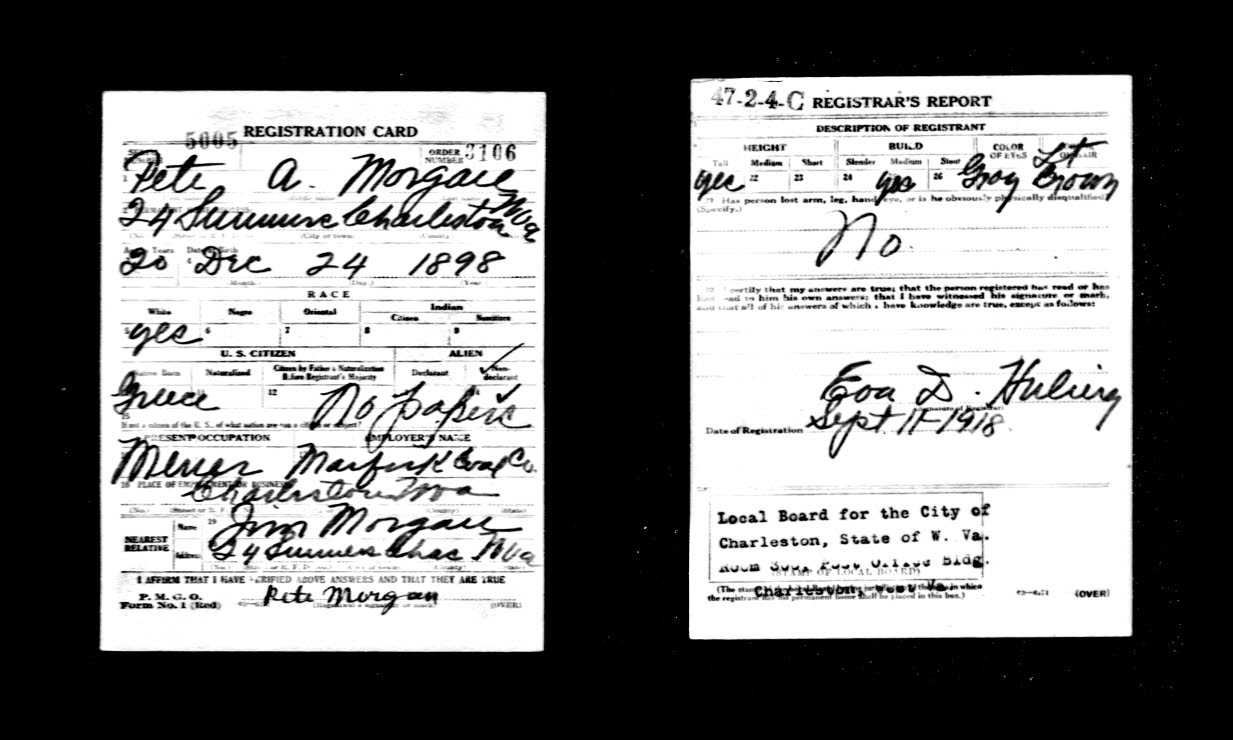 5005 REGISTRATION CARD
ORDER NUMBER 3106
Pete A. Morgan
24 Summers Charleston Wva
(No.) (City or town) (County)
20 Dec 24 1898
(Month) (Day) (Year)
RACE
White Negro Oriental Indian
Citizen Noncitizen
5 yes 6 7 8 9
U. S. CITIZEN ALIEN
Native Born Naturalized Citizen by Father's Naturalization Before Registrant's Majority Declarant Non-declarant
Greece 12 No papers
15 If not a citizen of the U. S., of what nation are you a citizen or subject?
PRESENT OCCUPATION EMPLOYER'S NAME
Miner Marfork Coal Co.
18 PLACE OF EMPLOYMENT OR BUSINESS
Charleston Wva
(No.) (Street or R. F. D. No.) (County) (State)
NEAREST RELATIVE Name 19 Jim Morgan
Address 24 Summers Chas Wva
I AFFIRM THAT I HAVE VERIFIED ABOVE ANSWERS AND THAT THEY ARE TRUE
P. M. G. O.
Form No. 1 (Red) Pete Morgan
(Registrant's signature or mark) (OVER)
47-2-4-C REGISTRAR'S REPORT
DESCRIPTION OF REGISTRANT
HEIGHT BUILD COLOR OF EYES COLOR OF HAIR
Tall Medium Short Slender Medium Stout
yes 22 23 24 yes 26 Gray Lt Brown
29 Has person lost arm, leg, hand, eye, or is he obviously physically disqualified?
(Specify.)
No
30 I certify that my answers are true; that the person registered has read or has
had read to him his own answers; that I have witnessed his signature or mark,
and that all of his answers of which I have knowledge are true, except as follows:
Eva D. Huling
(Signature of Registrar)
Date of Registration Sept 11-1918
Local Board for the City of
Charleston, State of W. Va.
Post Office Bldg.
(STAMP OF LOCAL BOARD)
Charleston, West Va.
(The stamp of the Local Board having jurisdiction of the area in which
the registrant has his permanent home shall be placed in this box.)
(OVER)